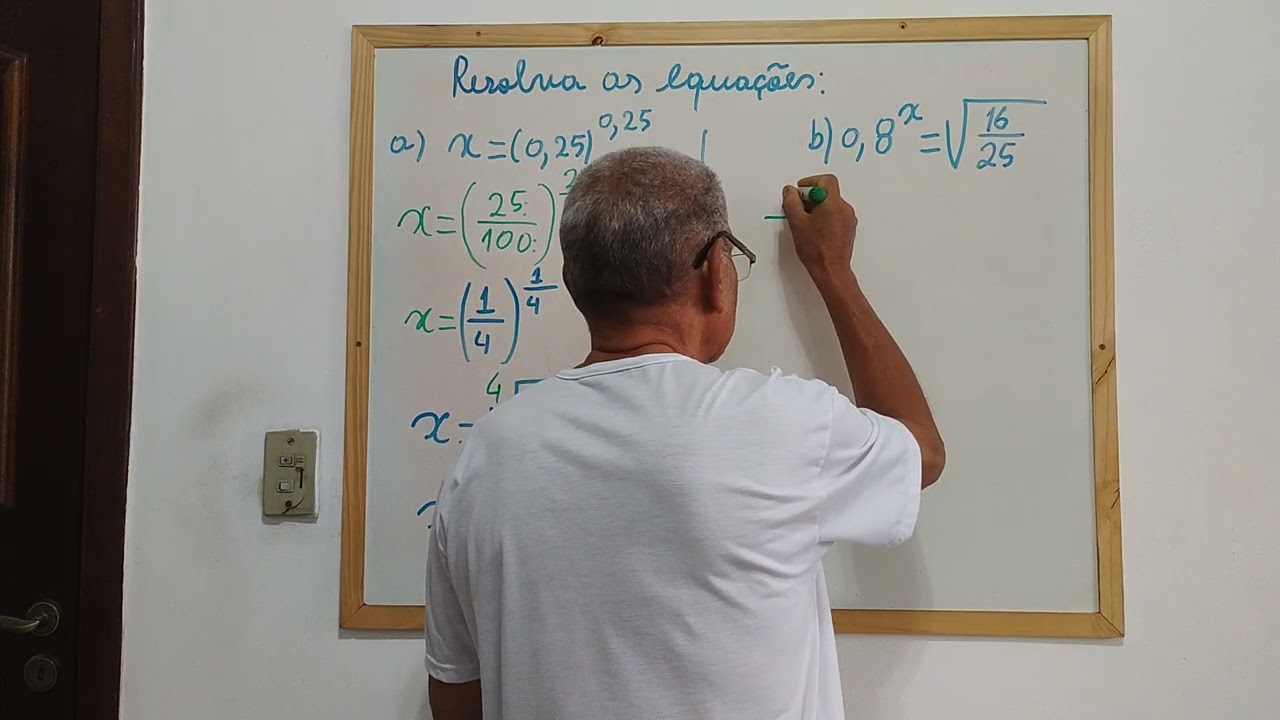 Resolva as equações:
a) x = (0,25)^0,25
b) 0,8^x = √(16/25)
x = (25:/100:)^2
x = (1/4)^(1/4)
x = 4√